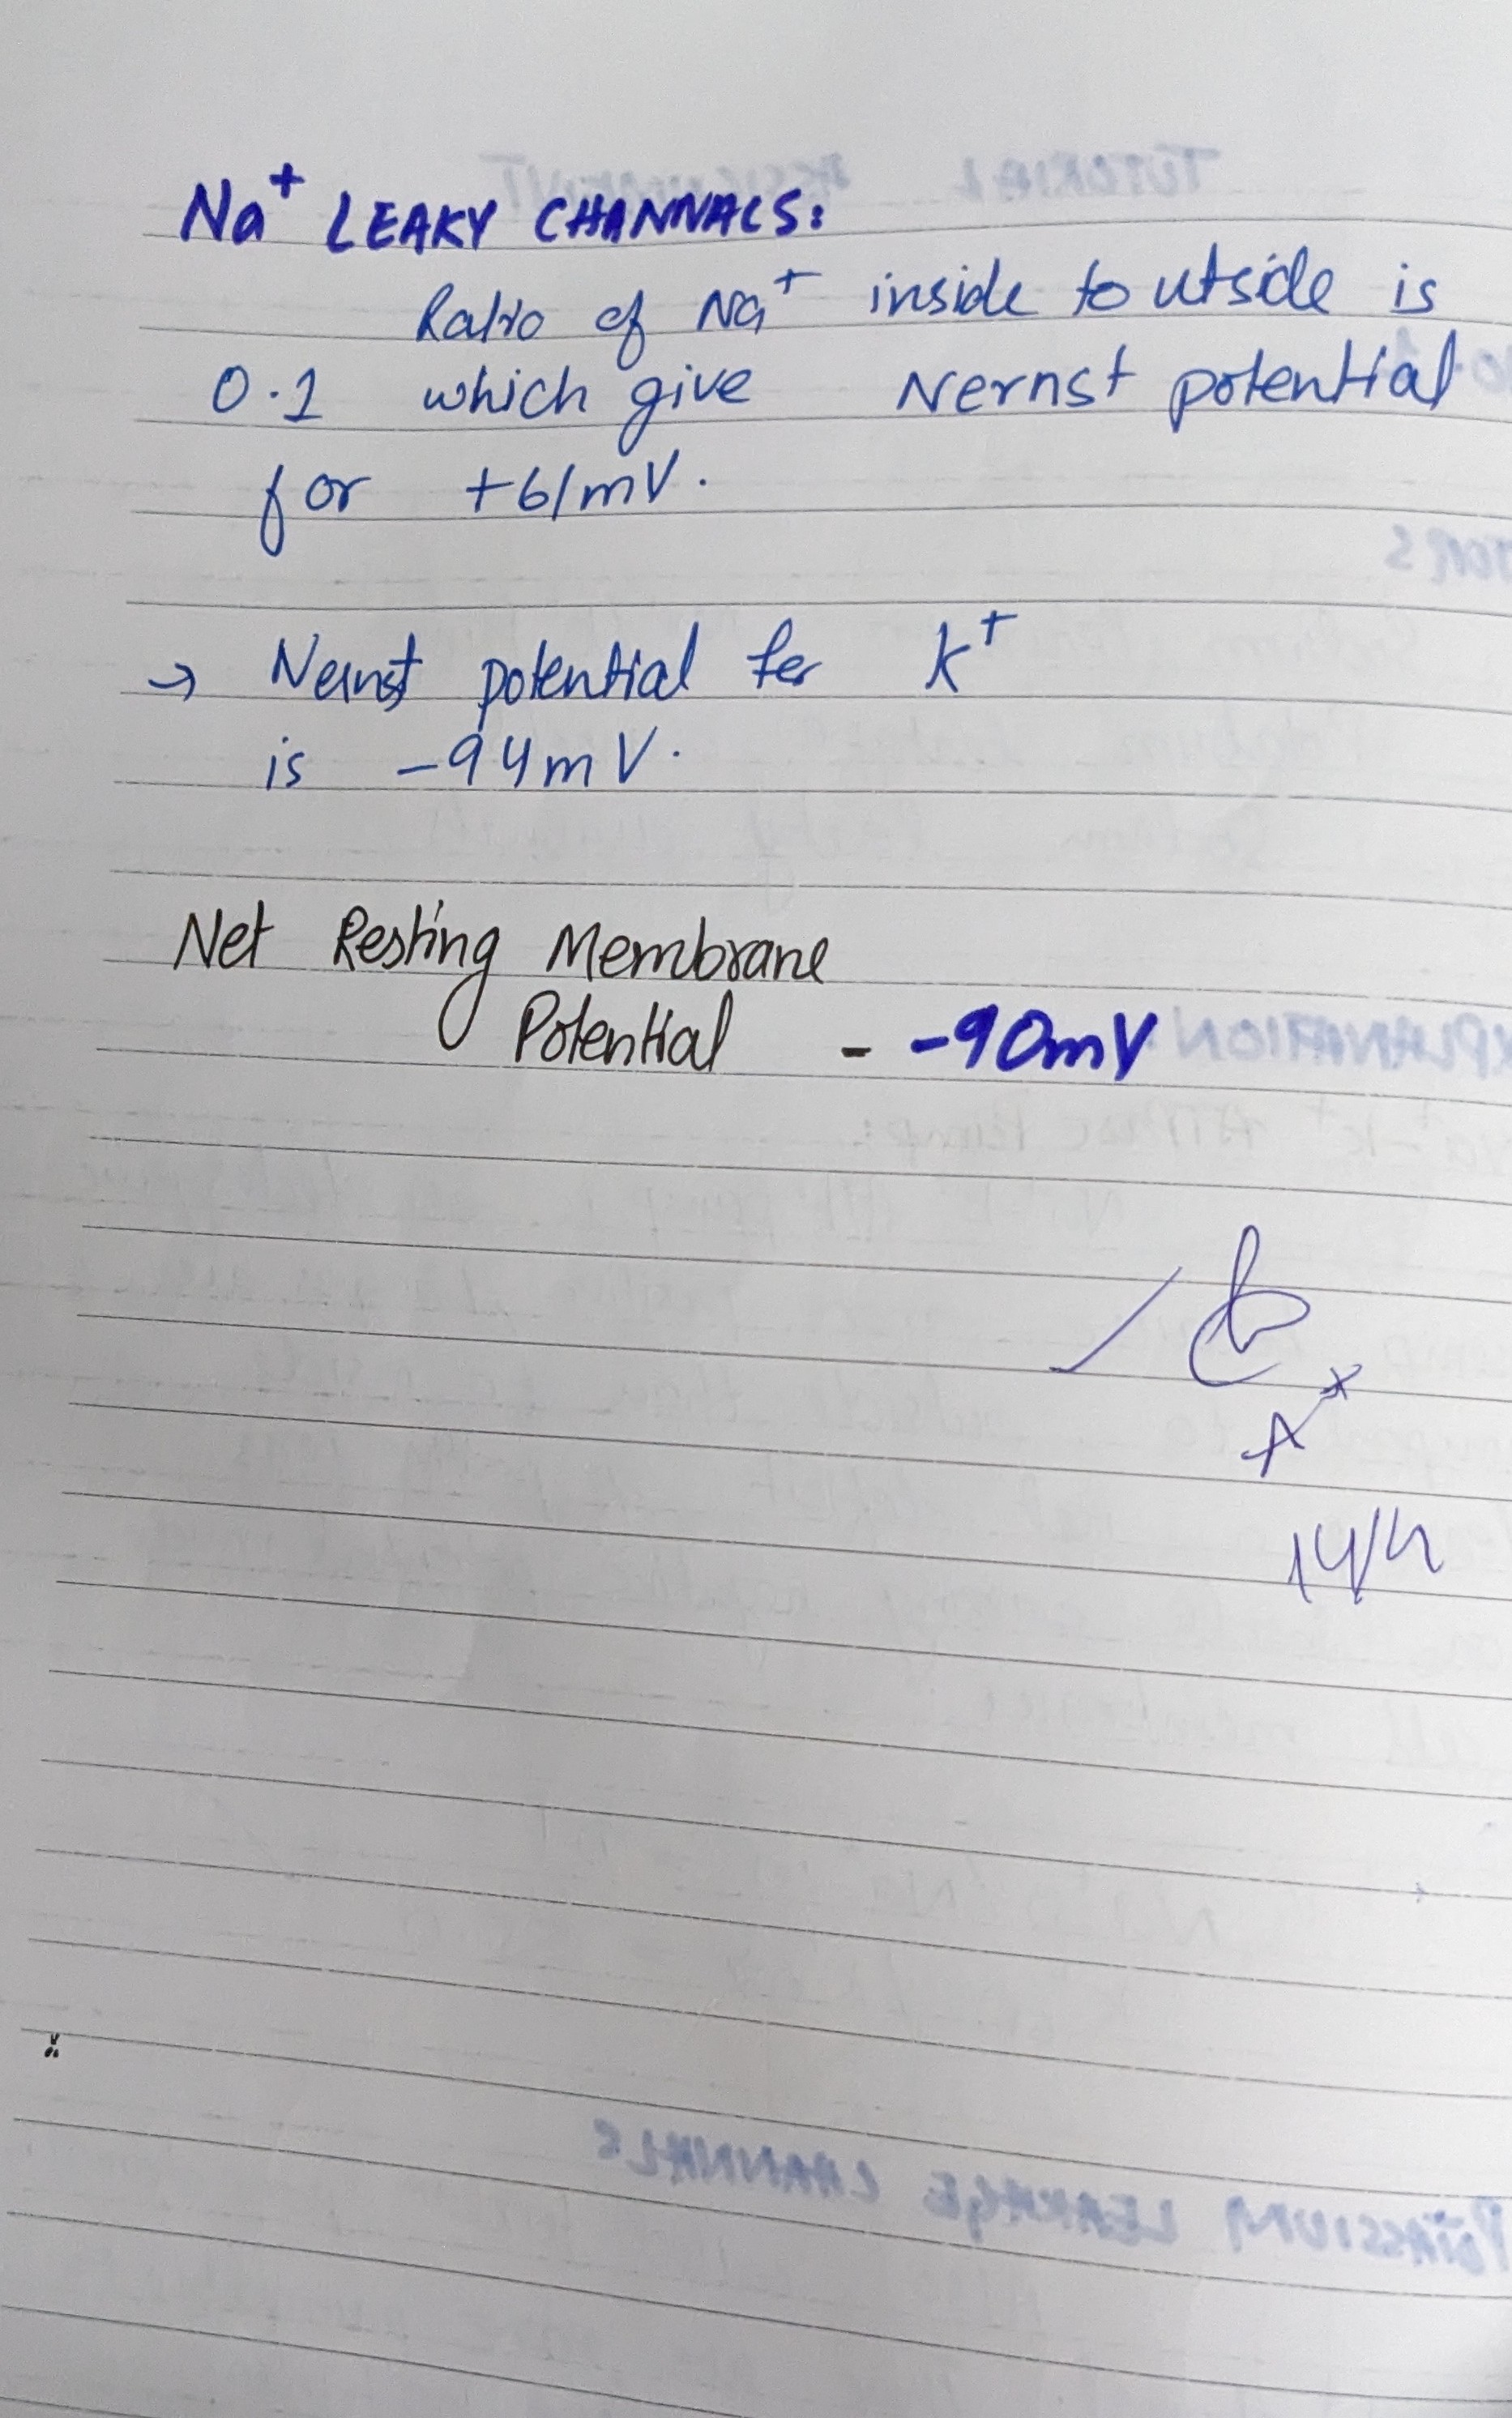 Na⁺ LEAKY CHANNALS:
Ratio of Na⁺ inside to utside is
0.1 which give Nernst potential
for +61mV.
→ Nernst potential for K⁺
is -94mV.
Net Resting Membrane
Potential - -90mV